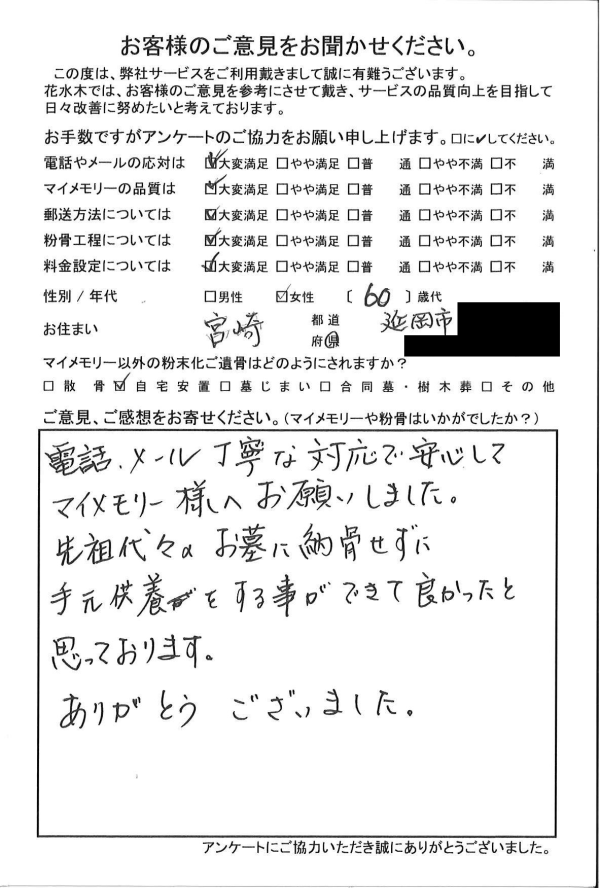 お客様のご意見をお聞かせください。
この度は、弊社サービスをご利用戴きまして誠に有難うございます。
花水木では、お客様のご意見を参考にさせて戴き、サービスの品質向上を目指して
日々改善に努めたいと考えております。
お手数ですがアンケートのご協力をお願い申し上げます。□に✔してください。
電話やメールの応対は ☑大変満足 □やや満足 □普 通 □やや不満 □不 満
マイメモリーの品質は ☑大変満足 □やや満足 □普 通 □やや不満 □不 満
郵送方法については ☑大変満足 □やや満足 □普 通 □やや不満 □不 満
粉骨工程については ☑大変満足 □やや満足 □普 通 □やや不満 □不 満
料金設定については ☑大変満足 □やや満足 □普 通 □やや不満 □不 満
性別/年代 □男性 ☑女性 〔 60 〕歳代
お住まい 宮崎 都 道 府 県 延岡市
マイメモリー以外の粉末化ご遺骨はどのようにされますか?
□散 骨 ☑自宅安置 □墓じまい □合同墓・樹木葬 □その他
ご意見、ご感想をお寄せください。(マイメモリーや粉骨はいかがでしたか?)
電話、メール丁寧な対応で安心して
マイメモリー様へお願いしました。
先祖代々のお墓に納骨せずに
手元供養をする事ができて良かったと
思っております。
ありがとうございました。
アンケートにご協力いただき誠にありがとうございました。